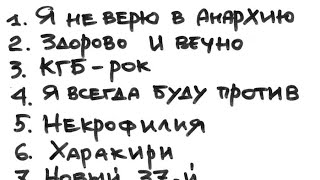 1. Я не верю в анархию
2. Здорово и вечно
3. КГБ-рок
4. Я всегда буду против
5. Некрофилия
6. Харакири
7. Новый 37-й